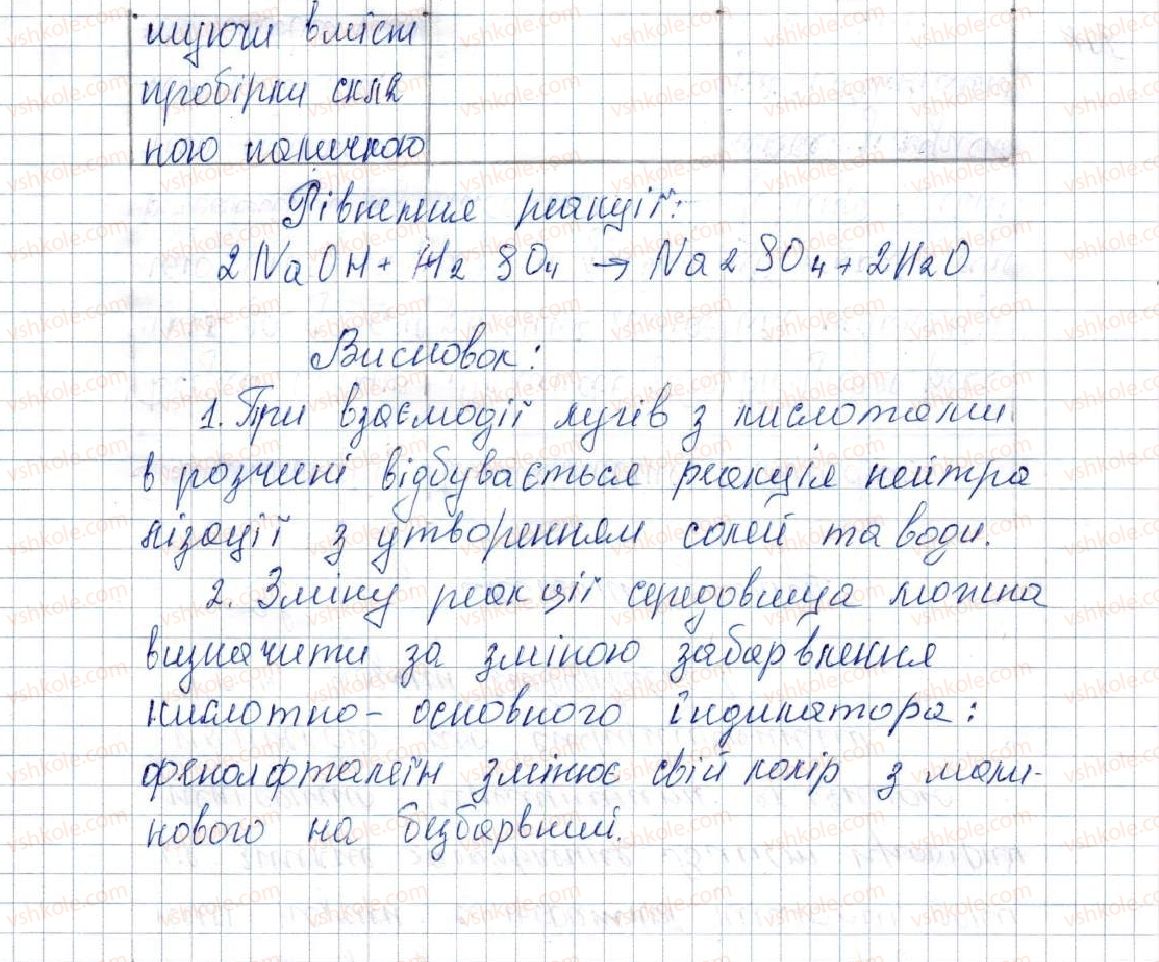 шуючи вміст
пробірки скля
ною паличкою
Рівняння реакції:
2NaOH + H2SO4 → Na2SO4 + 2H2O
Висновок:
1. При взаємодії лугів з кислотами
в розчині відбувається реакція нейтра
лізації з утворенням солей та води.
2. Зміну реакції середовища можна
визначити за зміною забарвлення
кислотно-основного індикатора:
фенолфталеїн змінює свій колір з мали-
нового на безбарвний.